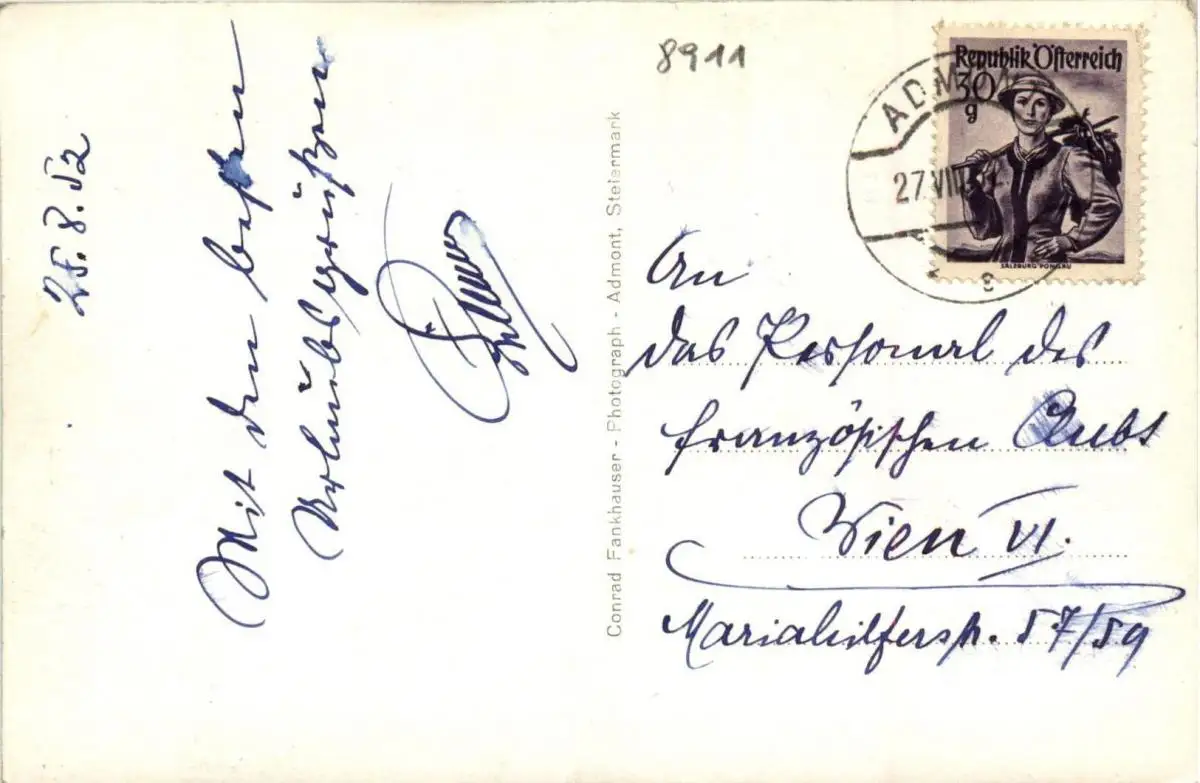 25.8.52
Mit den besten
Urlaubsgrüßen
8911
Republik Österreich
30
g
SALZBURG PONGAU
ADMONT
27.VIII
Conrad Fankhauser - Photograph - Admont, Steiermark
An
das Personal des
französischen Clubs
Wien VI.
Mariahilferstr. 57/59